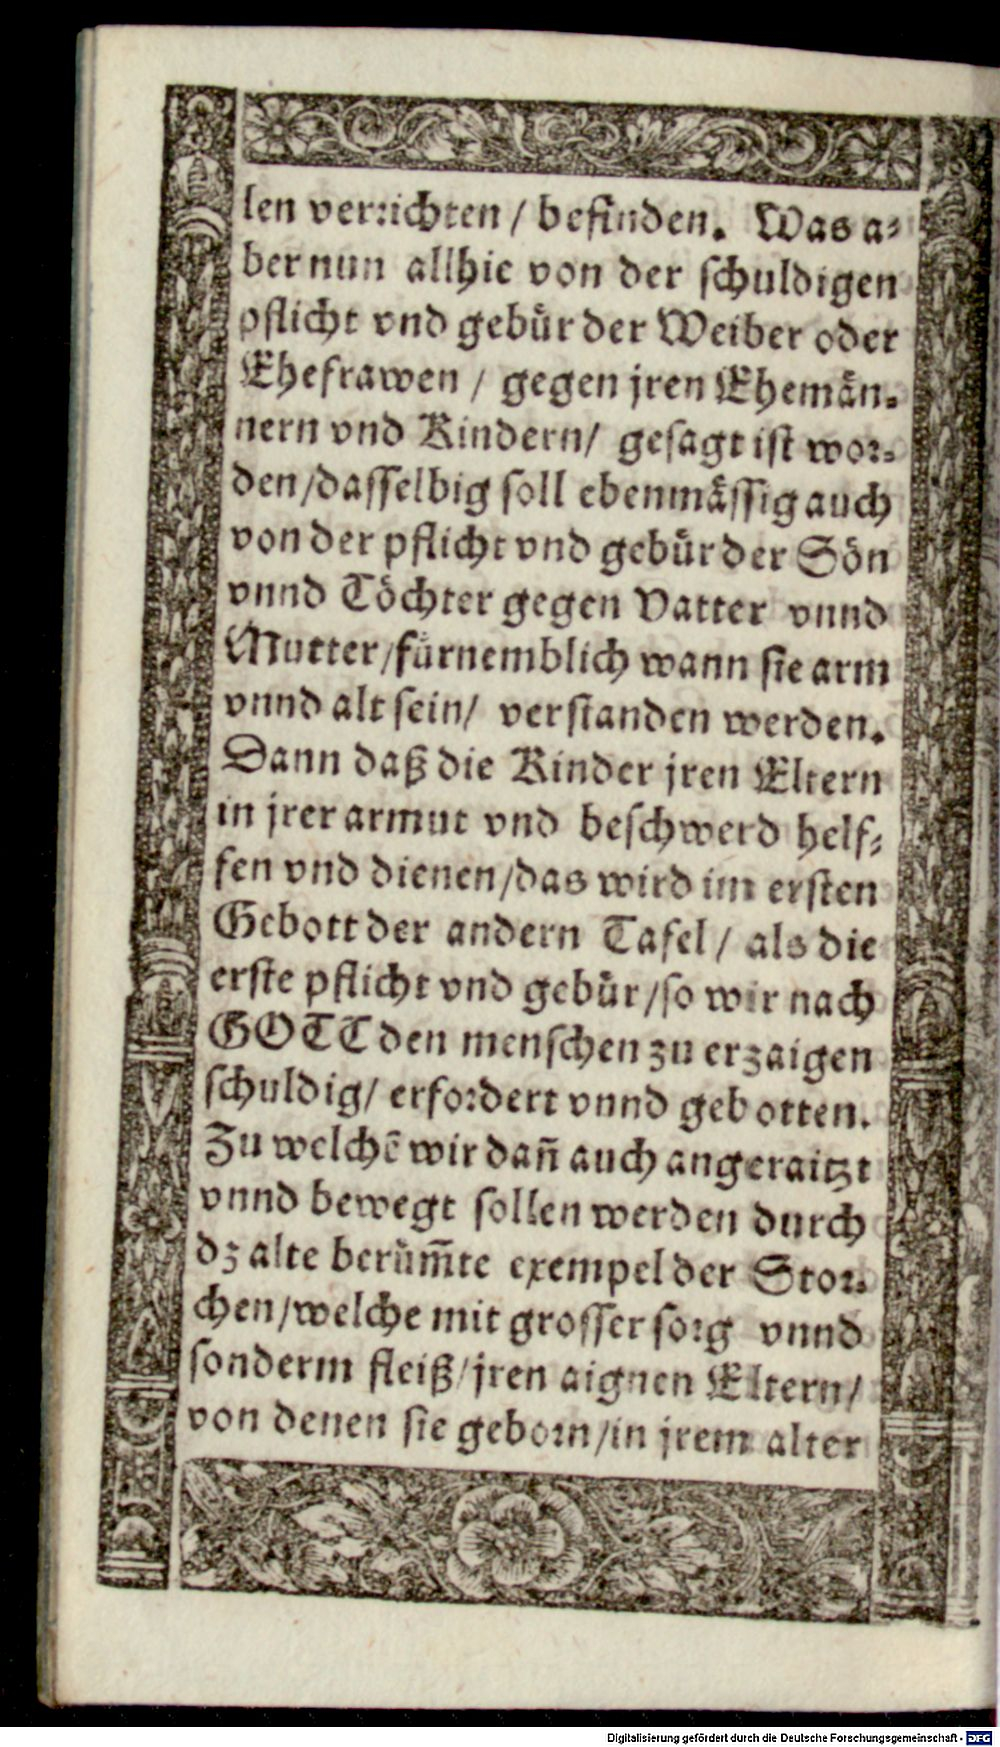 len verrichten / befinden. Was a⸗
ber nun allhie von der schuldigen
pflicht vnd gebür der Weiber oder
Ehefrawen / gegen jren Ehemän⸗
nern vnd Kindern / gesagt ist wor⸗
den / dasselbig soll ebenmässig auch
von der pflicht vnd gebür der Sön
vnnd Töchter gegen Vatter vnnd
Mutter / fürnemblich wann sie arm
vnnd alt sein / verstanden werden.
Dann daß die Kinder jren Eltern
in jrer armut vnd beschwerd helf⸗
fen vnd dienen / das wird im ersten
Gebott der andern Tafel / als die
erste pflicht vnd gebür / so wir nach
GOTT den menschen zu erzaigen
schuldig / erfordert vnnd gebotten.
Zu welchē wir dañ auch angeraitzt
vnnd bewegt sollen werden durch
dz alte berüm̄te exempel der Stor⸗
chen / welche mit grosser sorg vnnd
sonderm fleiß / jren aignen Eltern /
von denen sie geborn / in jrem alter
Digitalisierung gefördert durch die Deutsche Forschungsgemeinschaft - DFG